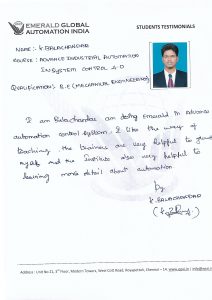 EMERALD GLOBAL
AUTOMATION INDIA
STUDENTS TESTIMONIALS
NAME :- K.BALACHANDAR
COURSE : ADVANCE INDUSTRIAL AUTOMATION
IN SYSTEM CONTROL 4.0
QUALIFICATION:- B.E (MECHANICAL ENGINEERING)
I am Balachandar am doing Emerald in advance
automation control system. I like the way of
teaching, the trainers are very helpful to
myself and the Institute also very helpful to
learning more detail about automation
by
K.BALACHANDAR
Address : Unit No 21, 3rd Floor, Modern Towers, West Cott Road, Royapettah, Chennai – 14.